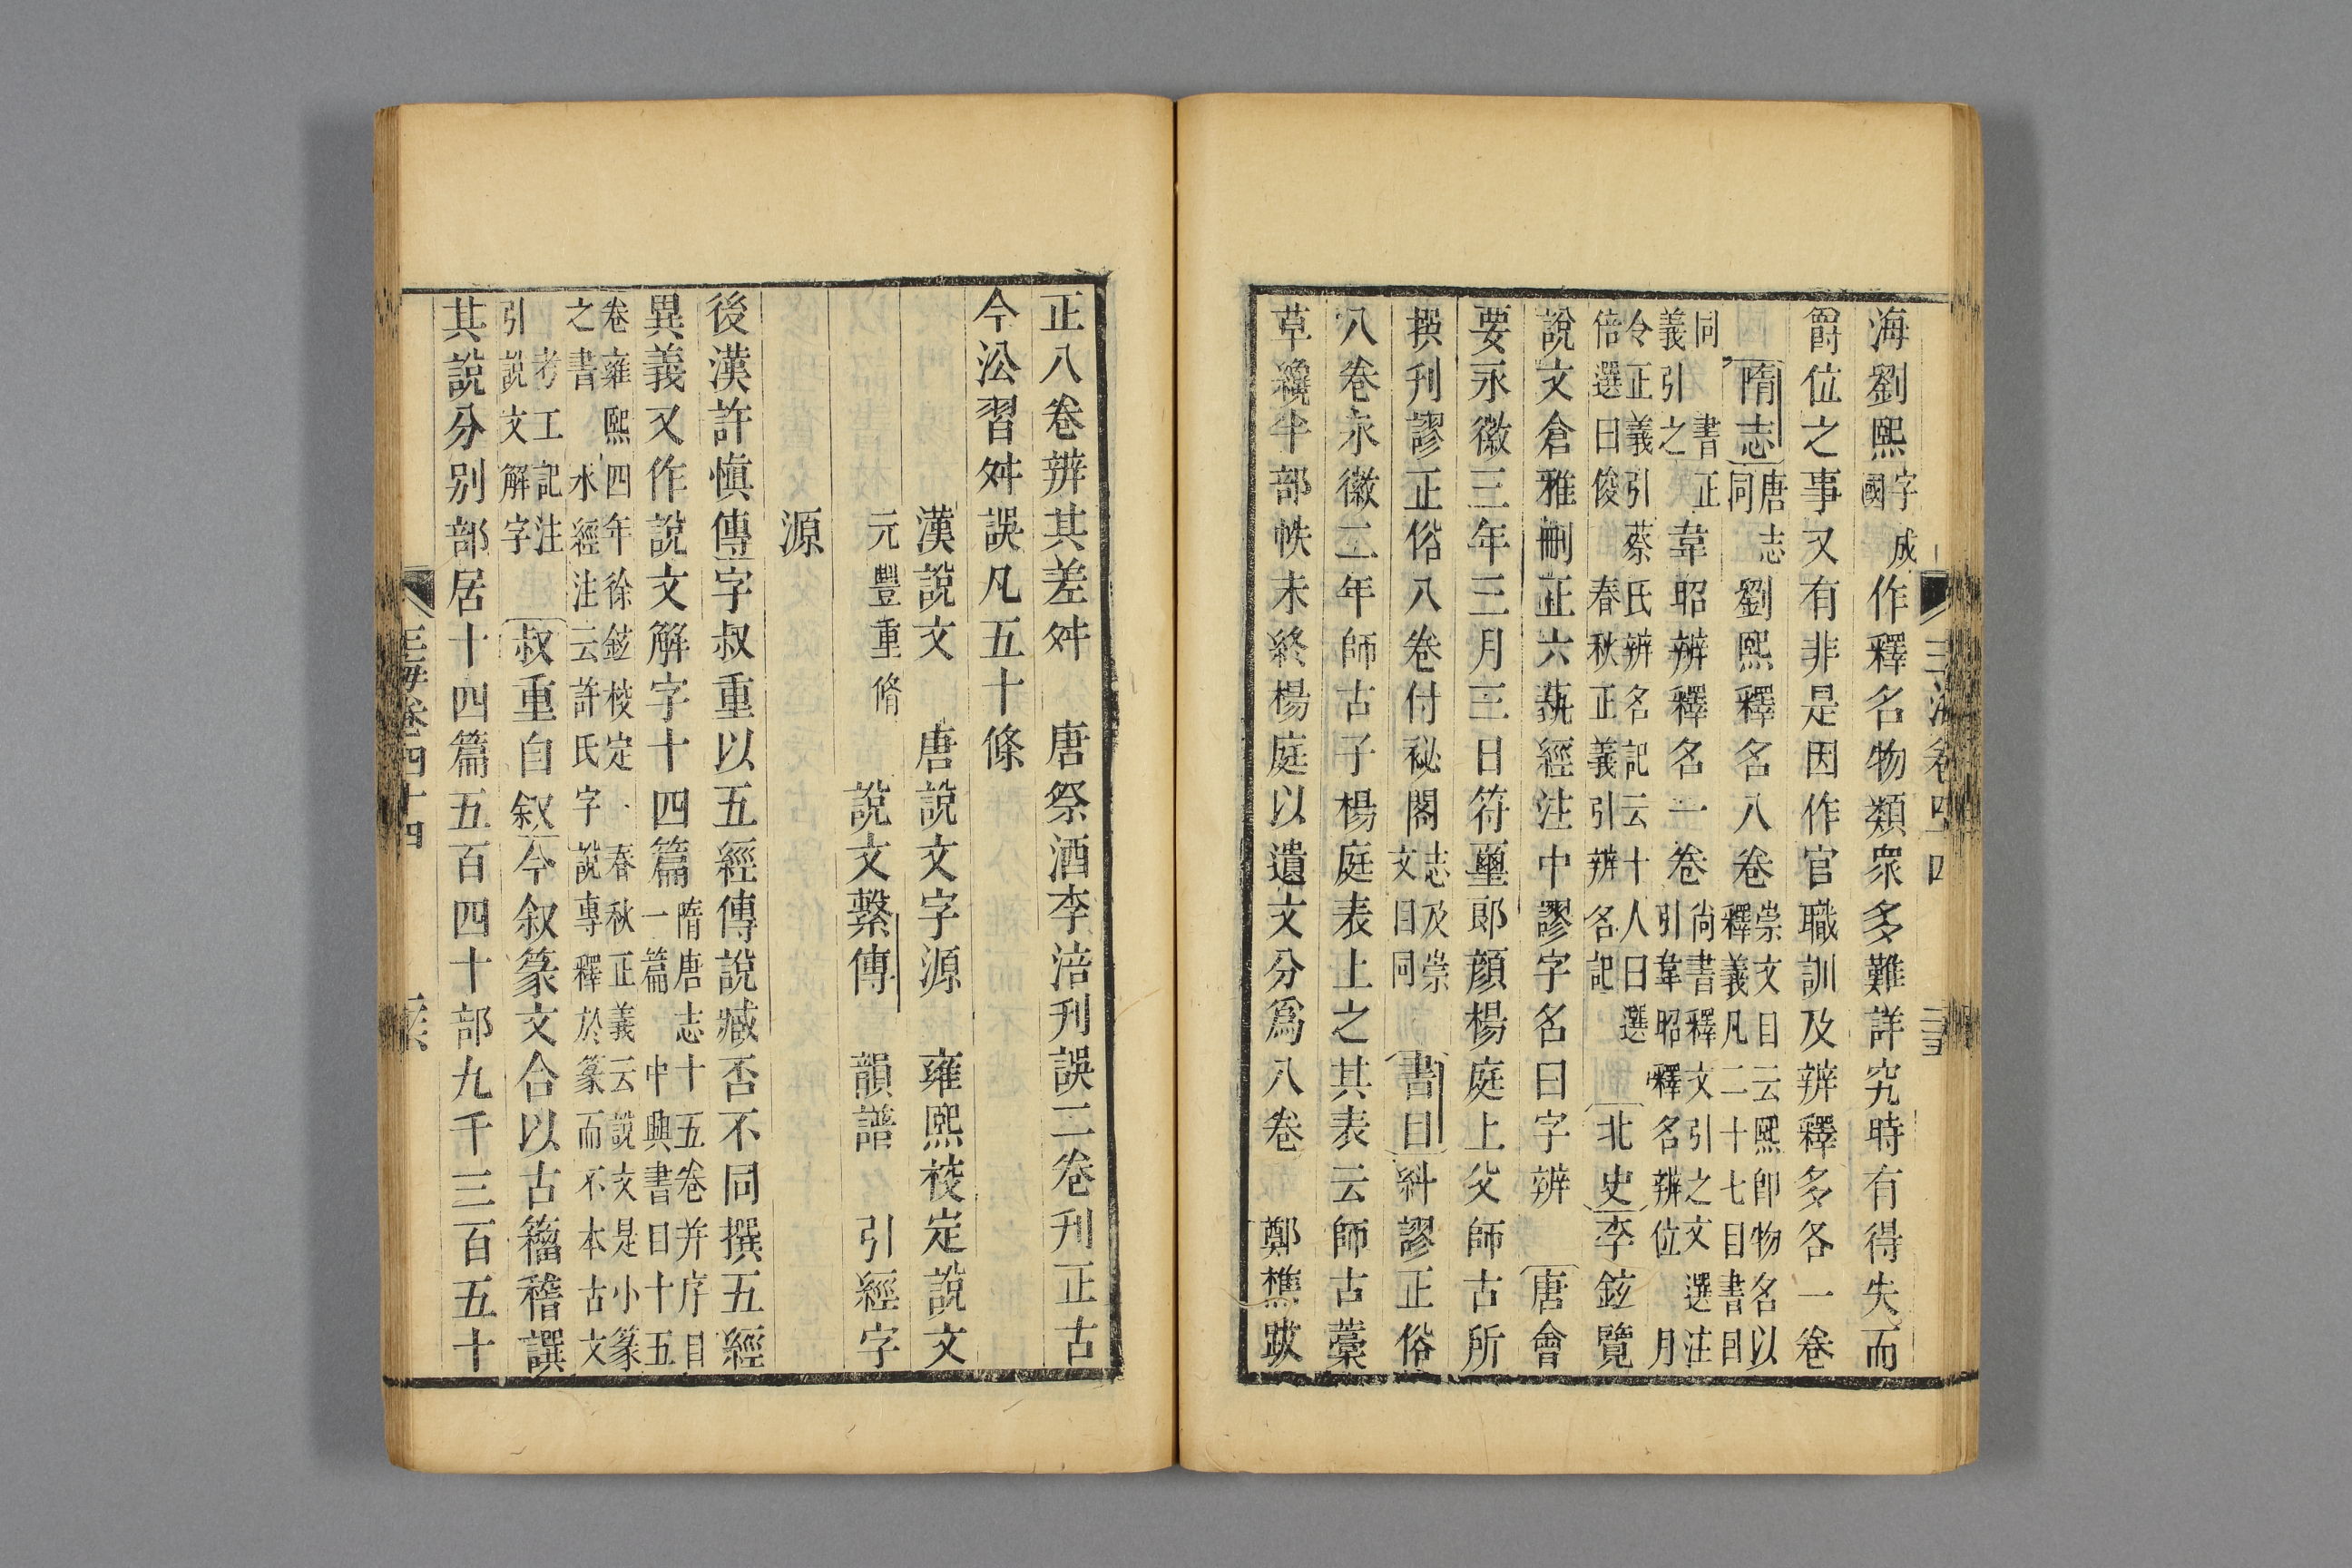 海劉熙字成國作釋名物類衆多難詳究時有得失而
爵位之事又有非是因作官職訓及辨釋多各一卷
隋志唐志同劉熙釋名八卷崇文目云熙卽物名以釋義凡二十七目書目
同書正義引之韋昭辨釋名一卷尚書釋文引之文選注引韋昭釋名辨位月
令正義引蔡氏辨名記云十人曰選倍選曰俊春秋正義引辨名記北史李鉉覽
說文倉雅刪正六藝經注中謬字名曰字辨唐會
要永徽三年三月三日符璽郎顏楊庭上父師古所
撰刊謬正俗八卷付祕閣志及崇文目同書目糾謬正俗
八卷永徽二年師古子楊庭表上之其表云師古藁
草纔半部帙未終楊庭以遺文分爲八卷鄭樵跋
正八卷辨其差舛唐祭酒李涪刊誤二卷刊正古
今沿習舛誤凡五十條
漢說文唐說文字源雍熙校定說文
元豐重脩說文繫傳韻譜引經字
源
後漢許愼傳字叔重以五經傳說臧否不同撰五經
異義又作說文解字十四篇隋唐志十五卷并序目一篇中興書目十五
卷雍熙四年徐鉉校定春秋正義云說文是小篆之書水經注云許氏字說專釋於篆而不本古文
考工記注引說文解字叔重自叙今叙篆文合以古籀稽譔
其說分別部居十四篇五百四十部九千三百五十